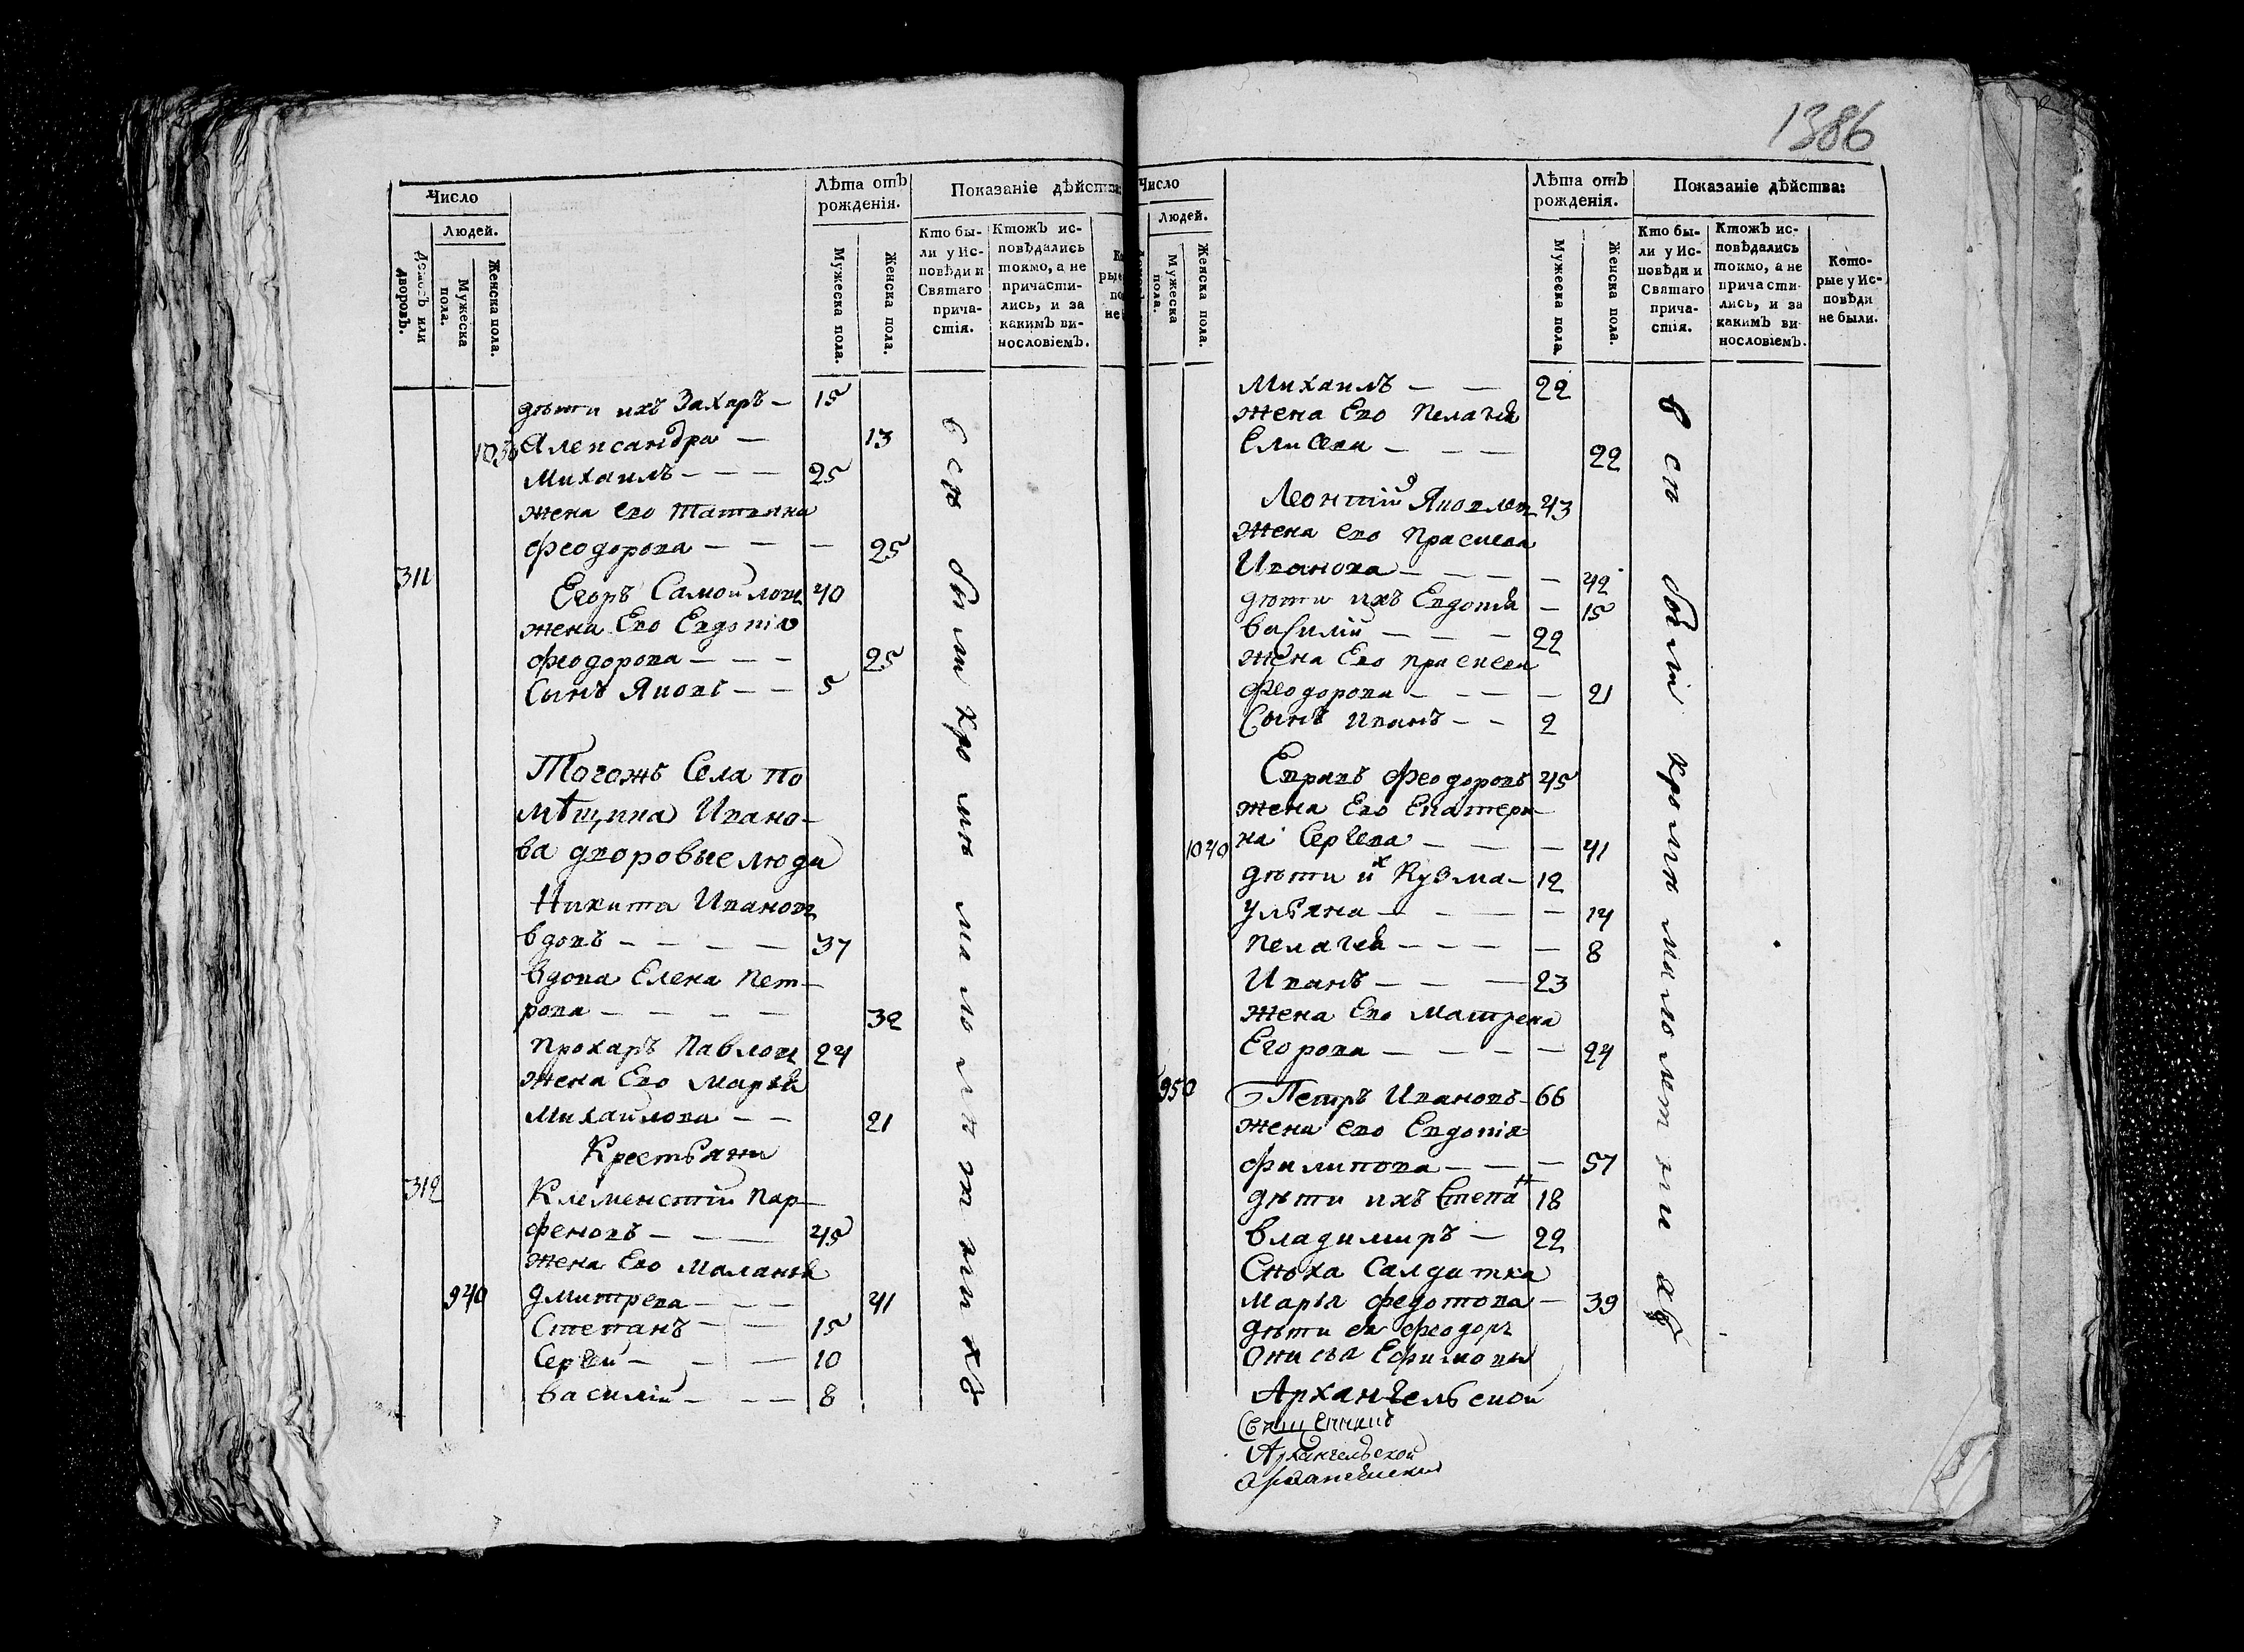 1386
Число
Людей.
Домовъ или дворовъ.
Мужеска пола.
Женска пола.
Лѣта отъ рожденія.
Мужеска пола.
Женска пола.
Показаніе дѣйства:
Кто бы-
ли у Ис-
повѣди и
Святаго
прича-
стія.
Ктожъ ис-
повѣдались
токмо, а не
причасти-
лись, и за
какимъ ви-
нословіемъ.
дѣти ихъ Захаръ — 15
1030 Александра — 13
Михаилъ — — — 25
жена его Татьяна
Феодорова — — — 25
311
Егоръ Самойловъ 40
жена Его Евдокія
Феодорова — — — 25
Сынъ Яковъ — — 5
Тогожъ Села По
мѣщика Ивано-
ва дворовые люди
Никита Ивановъ
вдовъ — — — — 37
вдова Елена Пет-
рова — — — — 32
Прохаръ Павловъ 24
жена Его Марья
Михайлова — — 21
Крестьяни
312 Клеменстій Пар-
феновъ — — — 45
жена Его Маланья
940 Дмитрева — — — 41
Степанъ — — 15
Сергѣй — — — 10
Василій — — — 8
всѣ были кромѣ малолѣтнихъ
Число
Людей.
Мужеска пола.
Женска пола.
Лѣта отъ рожденія.
Мужеска пола.
Женска пола.
Показаніе дѣйства:
Кто бы-
ли у Ис-
повѣди и
Святаго
прича-
стія.
Ктожъ ис-
повѣдались
токмо, а не
причасти-
лись, и за
какимъ ви-
нословіемъ.
Кото-
рые у Ис-
повѣди
не были.
Михаилъ — — 22
жена Его Пелагея
Елисева — — — 22
Леонтій Яковлевъ 43
жена его Прасковя
Иванова — — — — 42
дѣти ихъ Евдокѣя — 15
Василій — — — 22
жена Его Прасковя
Феодорова — — — — 21
Сынъ Иванъ — — 2
Евравъ Феодоровъ 45
жена Его Екатери-
1040 на Сергева — — — 41
дѣти их Кузма — 12
Ульяна — — — — 14
Пелагея — — — — 8
Иванъ — — — 23
жена Его Матрена
Егорова — — — — 24
950 Петръ Ивановъ — 66
жена его Евдокія
Филипова — — — 57
дѣти ихъ Степан 18
Владимиръ — 22
Сноха Салдатка
Марья Федотова — 39
дѣти ея Феодоръ
Онисья Ефимовы
всѣ были кромѣ малолетнихъ
Архангельской
Священникъ
Архангельской